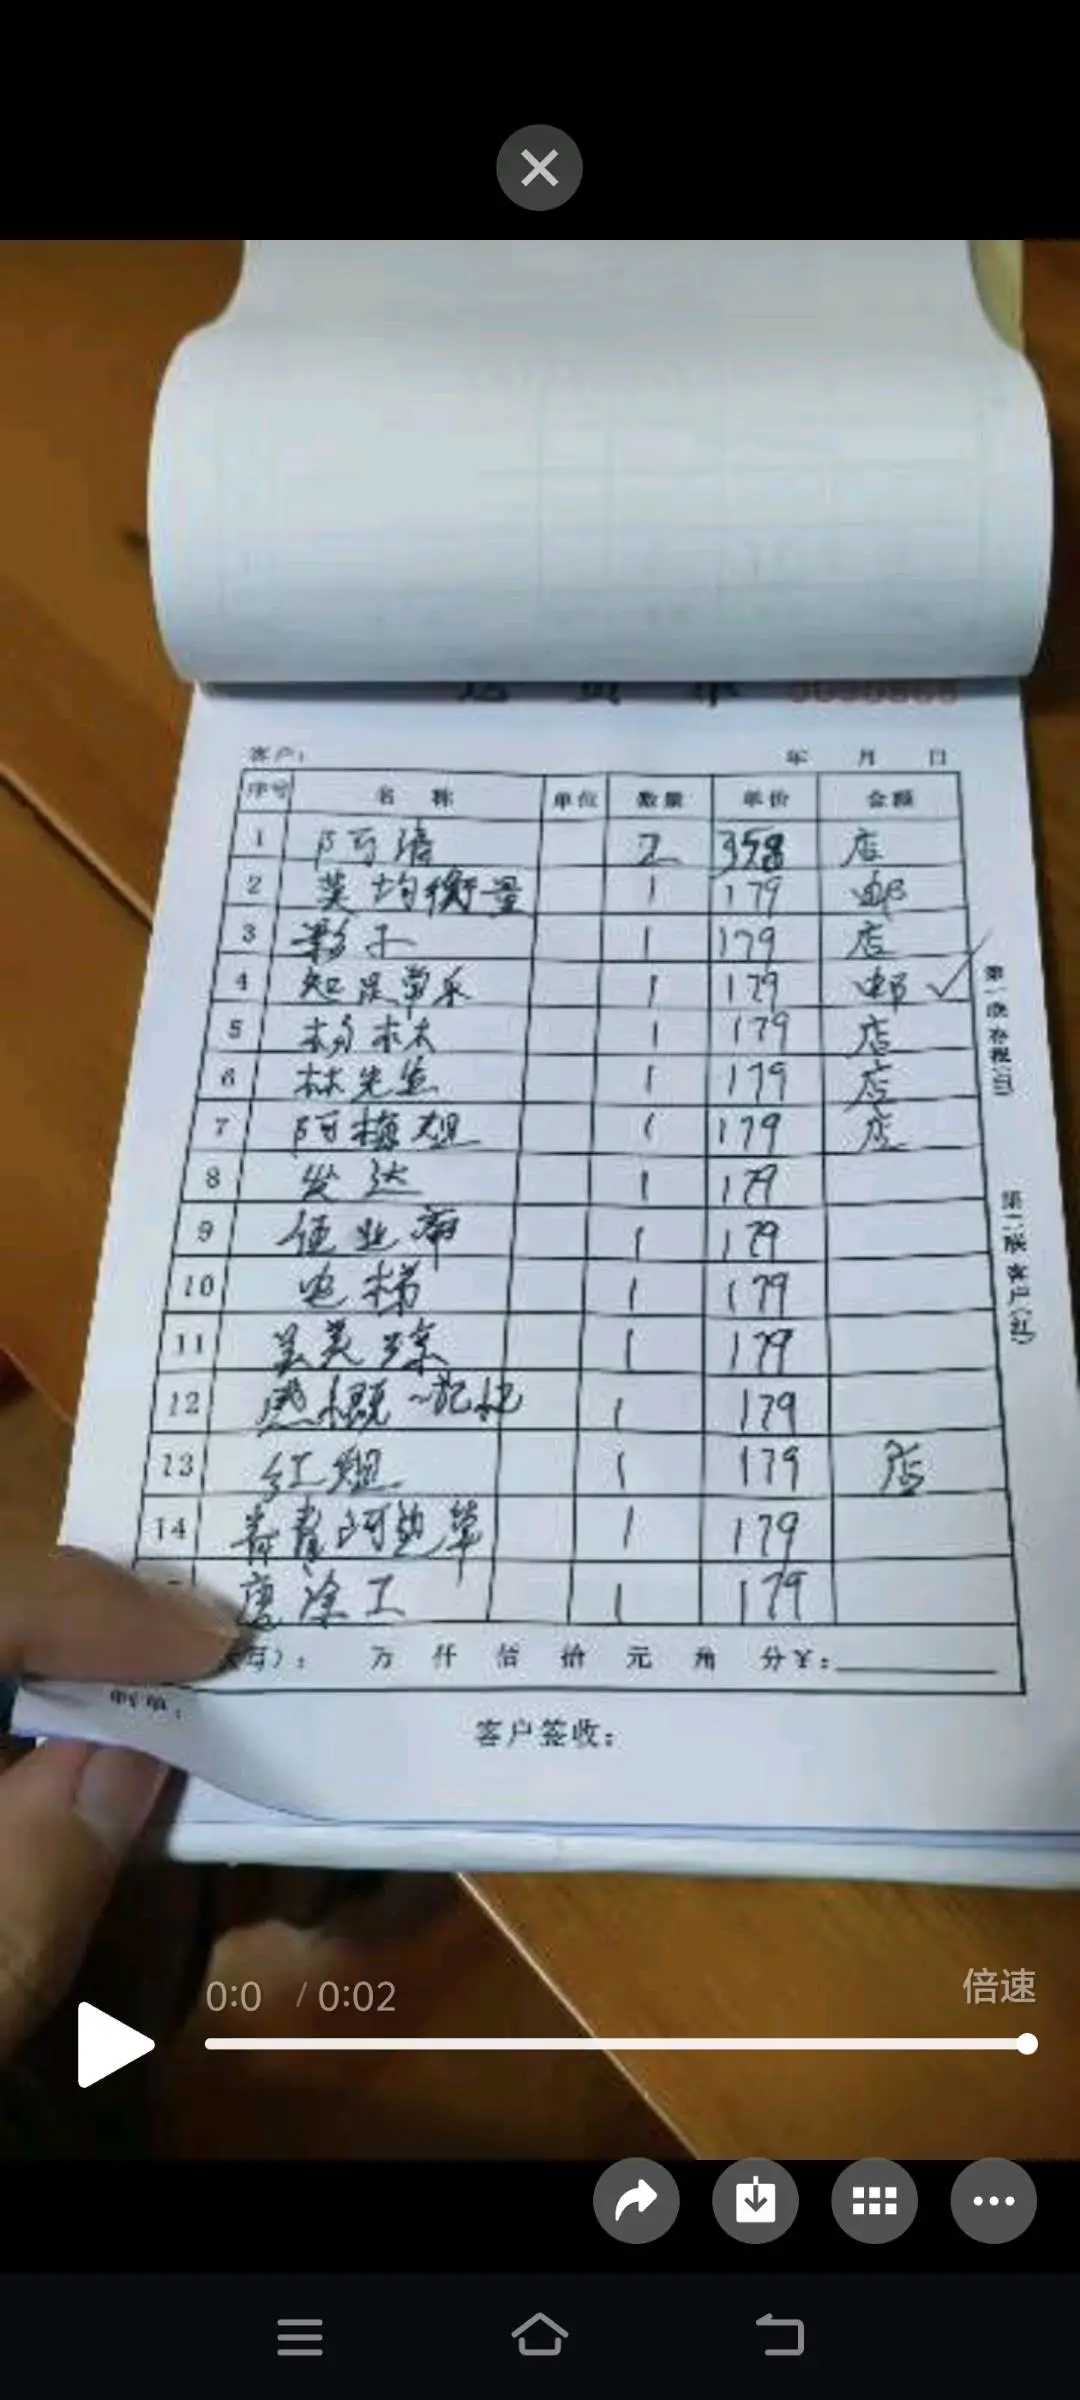 客户： 年 月 日
序号 名 称 单位 数量 单价 金额
1 阿清 2 358 店
2 英均衡量 1 179 邮
3 彩子 1 179 店
4 知足常乐 1 179 邮 ✓
5 杨林 1 179 店
6 林先生 1 179 店
7 阿梅姐 1 179 店
8 发达 1 179
9 1 179
10 电梯 1 179
11 吴美琼 1 179
12 感概~ 1 179
13 红姐 1 179 店
14 青青河边草 1 179
涂工 1 179
写）： 万 仟 佰 拾 元 角 分￥：
制单：
客户签收：
第一联 存根（白）
第二联 客户（红）
0:0 / 0:02
倍速